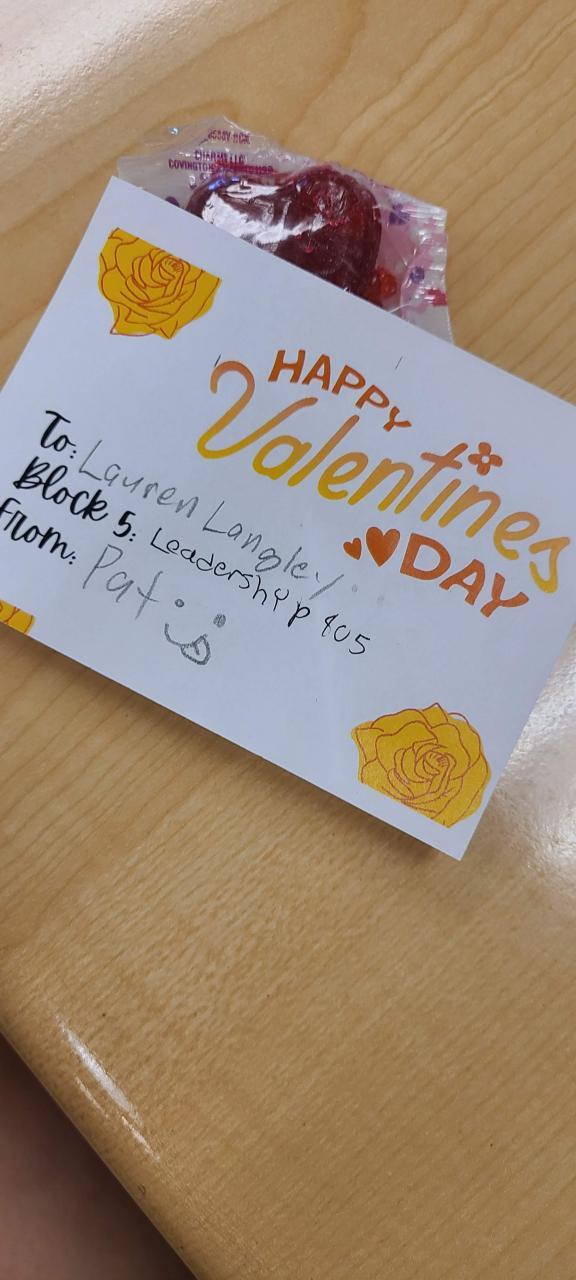 CHARMS LLC
COVINGTON
HAPPY
Valentines
DAY
To: Lauren Langley
Block 5: Leadership 405
From: Pat